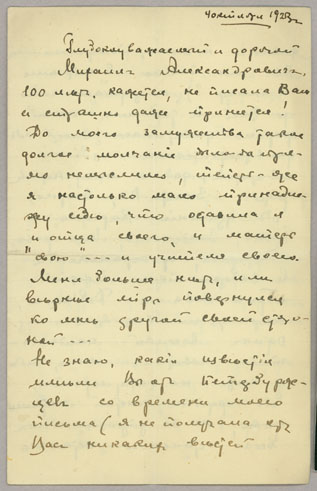 Глубокоуважаемый и дорогой
Михаилъ Александровичъ,
100 лѣтъ, кажется, не писала Вамъ
и страшно даже признется!
До моего замужества такое
долгое молчаніе было-бы пря-
мо немыслимо, теперь-же
я настолько мало принадле-
жу себѣ, что одавила я
и отца своего, и матерь
"свою" --- и учителя своего.
Меня больше нѣтъ, или
вѣрнѣе міръ повернулся
ко мнѣ другой своей сторо-
ной ---
Не знаю, какія извѣстія
имѣли Вы отъ Петербурж-
цевъ со времени моего
письма (я не получала отъ
Васъ никакихъ вѣстей